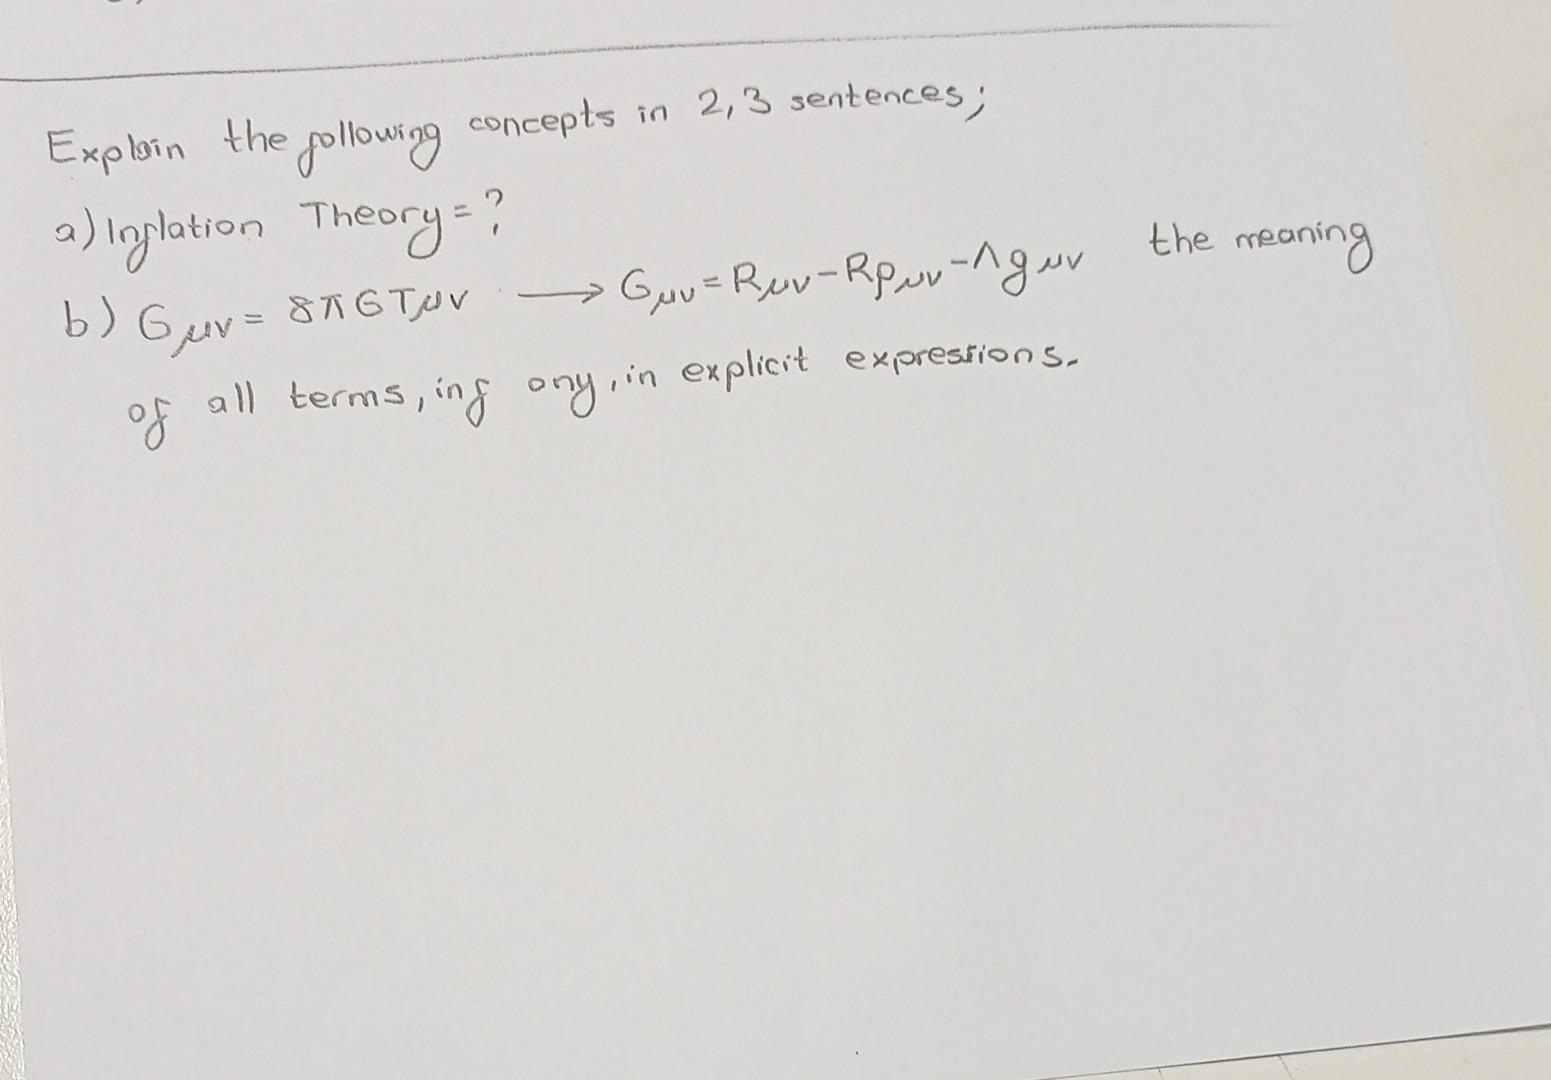 Explain the following concepts in 2,3 sentences;
a) Inflation Theory = ?
b) Gμν = 8πGTμν → Gμν = Rμν - Rρμν - Λgμν the meaning
of all terms, inf any, in explicit expressions.